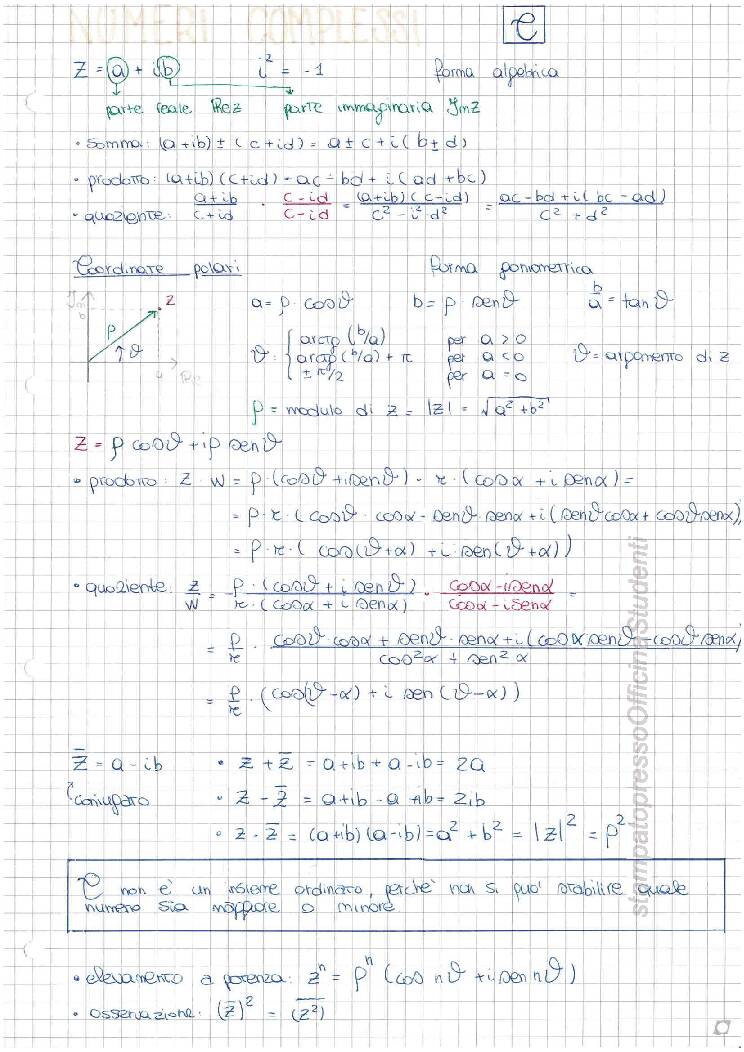 NUMERI COMPLESSI ℂ
z = a + ib i² = -1 forma algebrica
parte reale Rez parte immaginaria Imz
• somma: (a+ib) ± (c+id) = a±c+i(b±d)
• prodotto: (a+ib)(c+id) = ac-bd+i(ad+bc)
• quoziente: (a+ib)/(c+id) · (c-id)/(c-id) = (a+ib)(c-id)/(c²-i²d²) = (ac-bd+i(bc-ad))/(c²+d²)
Coordinate polari forma goniometrica
Im b z ρ ϑ a Re
a = ρ·cosϑ b = ρ senϑ b/a = tanϑ
ϑ: { arctg(b/a) per a>0
arctg(b/a)+π per a<0 ϑ = argomento di z
±π/2 per a=0
ρ = modulo di z = |z| = √(a²+b²)
z = ρcosϑ+iρsenϑ
• prodotto: z·w = ρ·(cosϑ+isenϑ)·r·(cosα+isenα) =
= ρ·r·(cosϑ·cosα-senϑ·senα+i(senϑcosα+cosϑsenα)
= ρ·r·(cos(ϑ+α)+i·sen(ϑ+α))
• quoziente: z/w = ρ·(cosϑ+isenϑ)/r·(cosα+isenα) · (cosα-isenα)/(cosα-isenα) =
= ρ/r · (cosϑ·cosα+senϑ·senα+i(cosαsenϑ-cosϑsenα)/(cos²α+sen²α)
= ρ/r·(cos(ϑ-α)+i sen(ϑ-α))
z̄ = a-ib • z+z̄ = a+ib+a-ib = 2a
coniugato • z-z̄ = a+ib-a+ib = 2ib
• z·z̄ = (a+ib)(a-ib) = a²+b² = |z|² = ρ²
ℂ non è un insieme ordinato, perchè non si può stabilire quale
numero sia maggiore o minore
• elevamento a potenza: zⁿ = ρⁿ(cos nϑ+i sen nϑ)
• osservazione: (z̄)² = (z²)̄
stampatopressoOfficinaStudenti